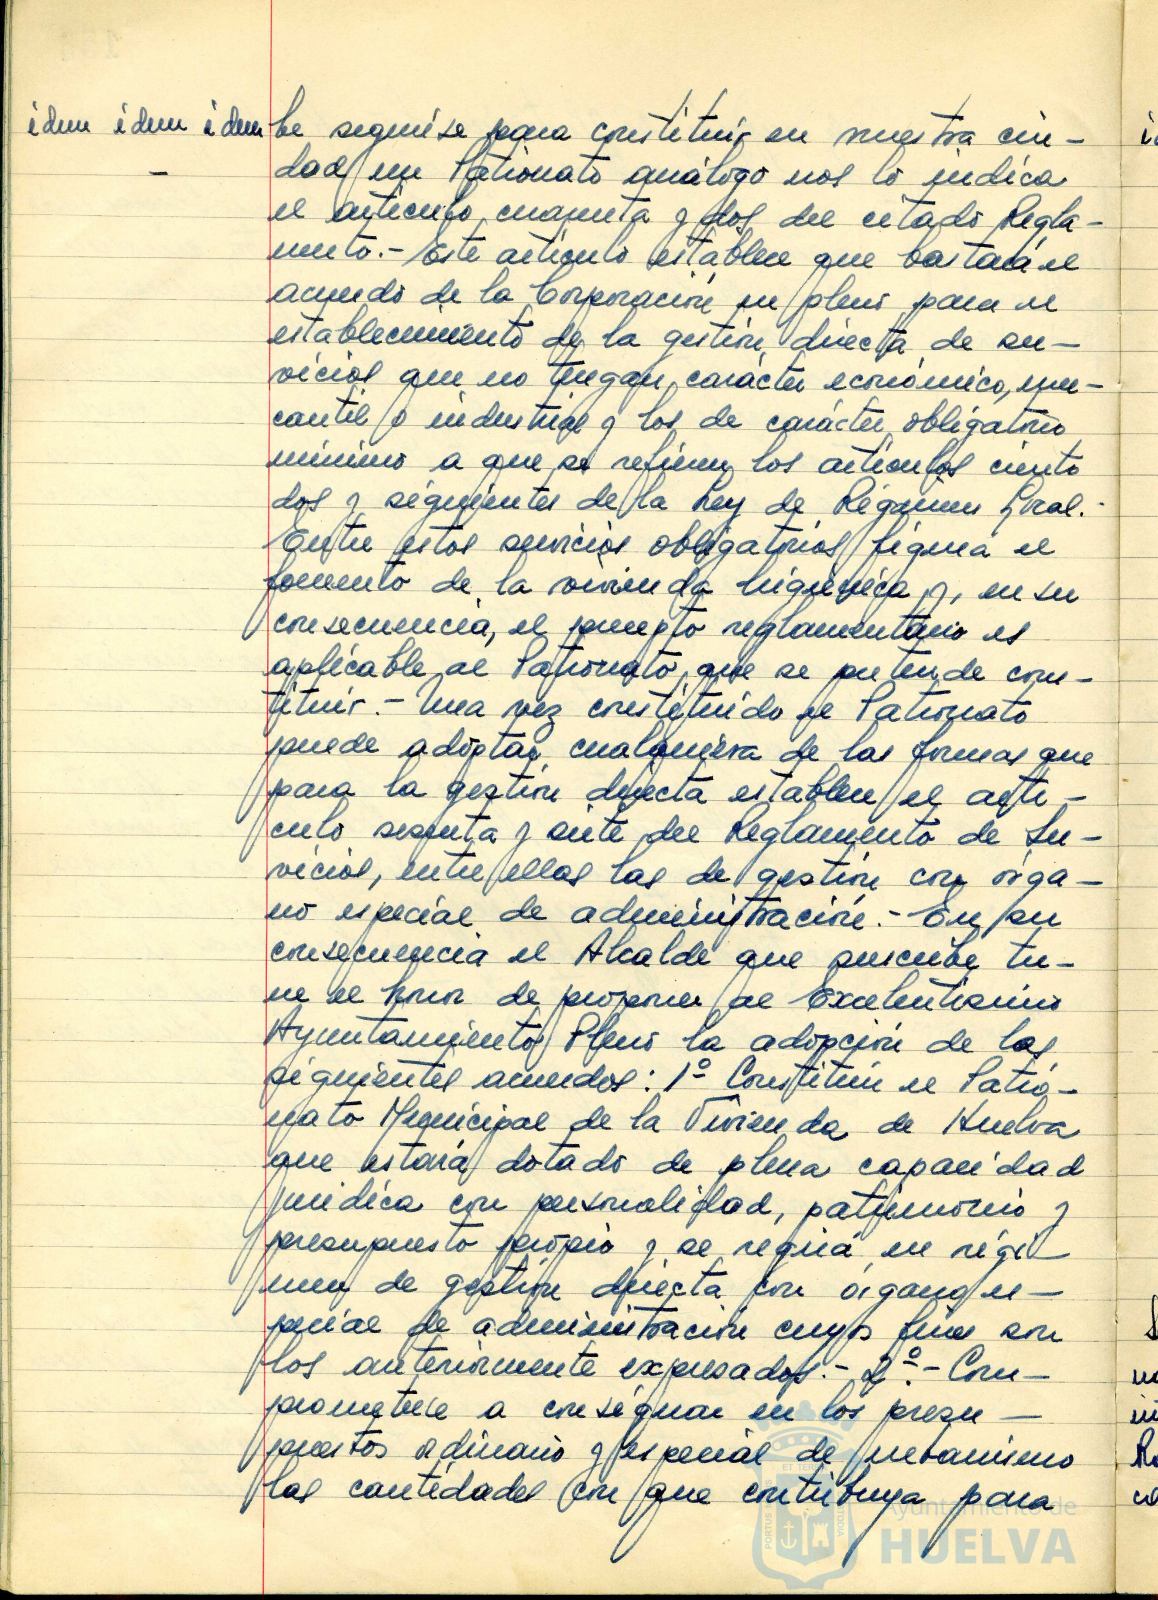 idem idem idem be seguirse para constituir en nuestra ciu-
- dad un Patronato análogo nos lo indica
el artículo cuarenta y dos del citado Regla-
mento.- Este artículo establece que bastará el
acuerdo de la Corporación en pleno para el
establecimiento de la gestión directa de ser-
vicios que no tengan carácter económico, mer-
cantil o industrial y los de carácter obligatorio
mínimo a que se refieren los artículos ciento
dos y siguientes de la Ley de Régimen Local.-
Entre estos servicios obligatorios figura el
fomento de la vivienda higiénica y, en su
consecuencia, el precepto reglamentario es
aplicable al Patronato que se pretende cons-
tituir.- Una vez constituido el Patronato
puede adoptar cualquiera de las formas que
para la gestión directa establece el artí-
culo sesenta y siete del Reglamento de Ser-
vicios, entre ellas las de gestión con órga-
no especial de administración.- En su
consecuencia el Alcalde que suscribe tie-
ne el honor de proponer al Excelentísimo
Ayuntamiento Pleno la adopción de los
siguientes acuerdos: 1º Constituir el Patro-
nato Municipal de la Vivienda de Huelva
que estará dotado de plena capacidad
jurídica con personalidad, patrimonio y
presupuesto propio y se regirá en régi-
men de gestión directa con órgano es-
pecial de administración cuyos fines son
los anteriormente expresados.- 2º.- Com-
prometerse a consignar en los presu-
puestos ordinario y especial de urbanismo
las cantidades con que contribuya para
Ayuntamiento de
HUELVA